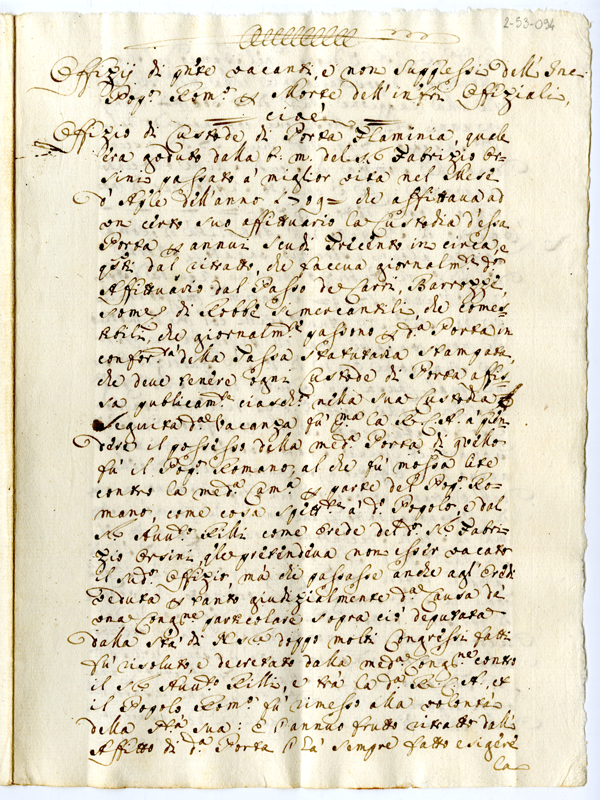 2-53-094
Offizij di pnte vacanti, e non suppressi dell' Inc.
Pop.º Rom.º p Morte dell' infri Offiziali,
cioè
Offizio di Custode di Porta Flaminia, quale
era goduto dalla b. m. del S.r Fabrizio Or-
sini passato à miglior vita nel Mese
d'Aple dell' anno che affittava ad
un certo suo affittuario la Custodia d'essa
Porta p annui scudi trecento in circa, e
qsti dal ritratto, che faceva giornalm.te do
Affittuario dal Passo de Carri, Barrozze,
some di Robbe sì mercantili, che comes-
tibili, che giornalm.te passono p d.a Porta in
conform.tà della Tassa Statutaria stampata,
che deve tenere ogni Custode di Porta affis-
sa publicam.te ciasche nella sua Custodia
Seguita d.a Vacanza fù p.ma la R. C. A. à pren-
dere il possesso della med.a Porta, di quello
fù il Pop.º Romano, al che fù mossa lite
contro la med.a Cam.a p parte del Pop.º Ro-
mano, come cosa spett.e à d.º Popolo, e dal
S.r Aud.º Rilli come erede del d.º S.r Fabri-
zio Orsini, qle pretendeva non esser vacato
il sud.º Offizio, mà che passasse anche agl' Eredi
Veduta p tanto giudizialmente d.a Causa da
una Cong.ne particolare sopra ciò deputata
dalla Stà di N. S.re doppo molti Congressi fatti
fù risoluto, e decretato dalla med.a Cong.ne contro
il S.r Aud.º Rilli, e trà la d.a R. C. A., et
il Popolo Rom.º fù rimesso alla volontà
della Stà sua: E l'annuo frutto ritratto dall'
Affitto di d.a Porta l' hà sempre fatto esigere
la